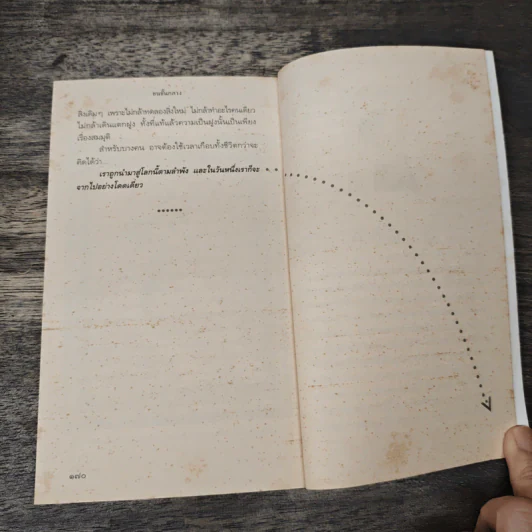 คนค้นกลวง
สิ่งเดิมๆ เพราะไม่กล้าทดลองสิ่งใหม่ ไม่กล้าทำอะไรคนเดียว
ไม่กล้าเดินแตกฝูง ทั้งที่แท้แล้วความเป็นฝูงนั้นเป็นเพียง
เรื่องสมมุติ
สำหรับบางคน อาจต้องใช้เวลาเกือบทั้งชีวิตกว่าจะ
คิดได้ว่า...
เราถูกนำมาสู่โลกนี้ตามลำพัง และในวันหนึ่งเราก็จะ
จากไปอย่างโดดเดี่ยว
๑๗๐